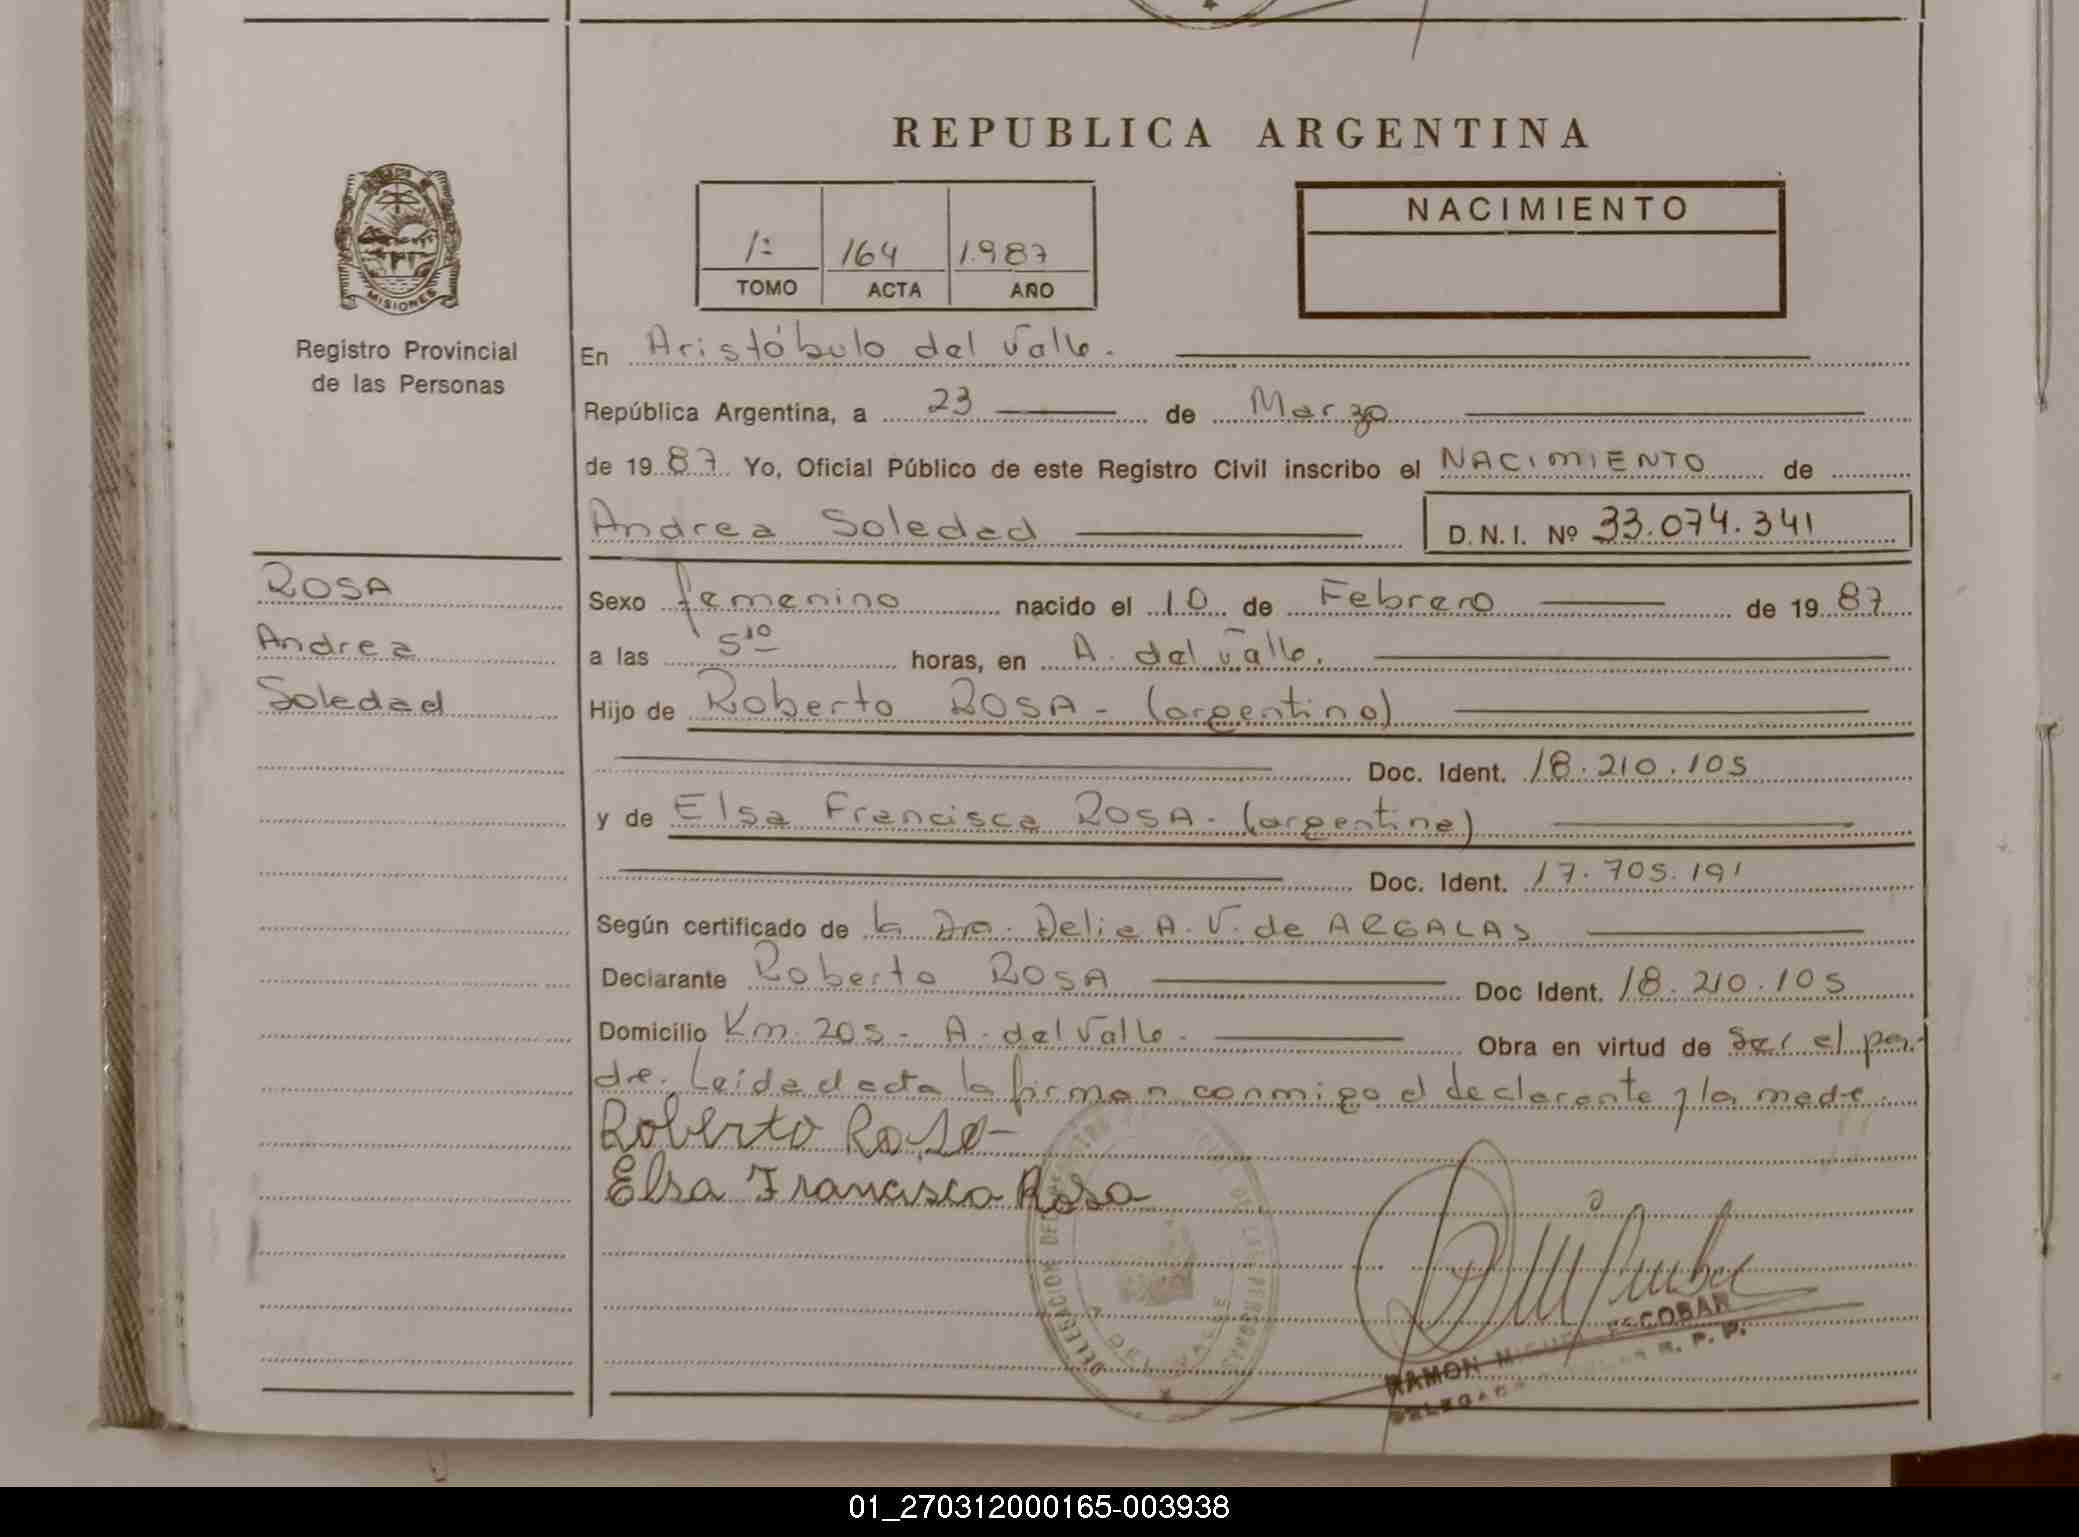 REPUBLICA ARGENTINA
1:
164
1.987
TOMO
ACTA
AÑO
NACIMIENTO
MISIONES
Registro Provincial
de las Personas
En Aristóbulo del Valle.
República Argentina, a 23 de Marzo
de 19 87 Yo, Oficial Público de este Registro Civil inscribo el NACIMIENTO de
Andrea Soledad
D. N. I. Nº 33.074.341
ROSA
Andrea
Soledad
Sexo femenino nacido el 10 de Febrero de 19 87
a las 5 10 horas, en A. del Valle.
Hijo de Roberto ROSA - (argentino)
Doc. Ident. 18.210.105
y de Elsa Francisca ROSA - (argentina)
Doc. Ident. 17.705.191
Según certificado de la Dra. Delia A. V. de ARGALAS
Declarante Roberto ROSA Doc Ident. 18.210.105
Domicilio Km. 205 - A. del Valle - Obra en virtud de ser el pa-
dre. Leida el acta la firman conmigo el declarante y la madre.
Roberto Rosa-
Elsa Francisca Rosa
DELEGACION DEL REGISTRO DE LAS PERSONAS
A DEL VALLE
RAMON MIGUEL ESCOBAR
R. P. P.
01_270312000165-003938